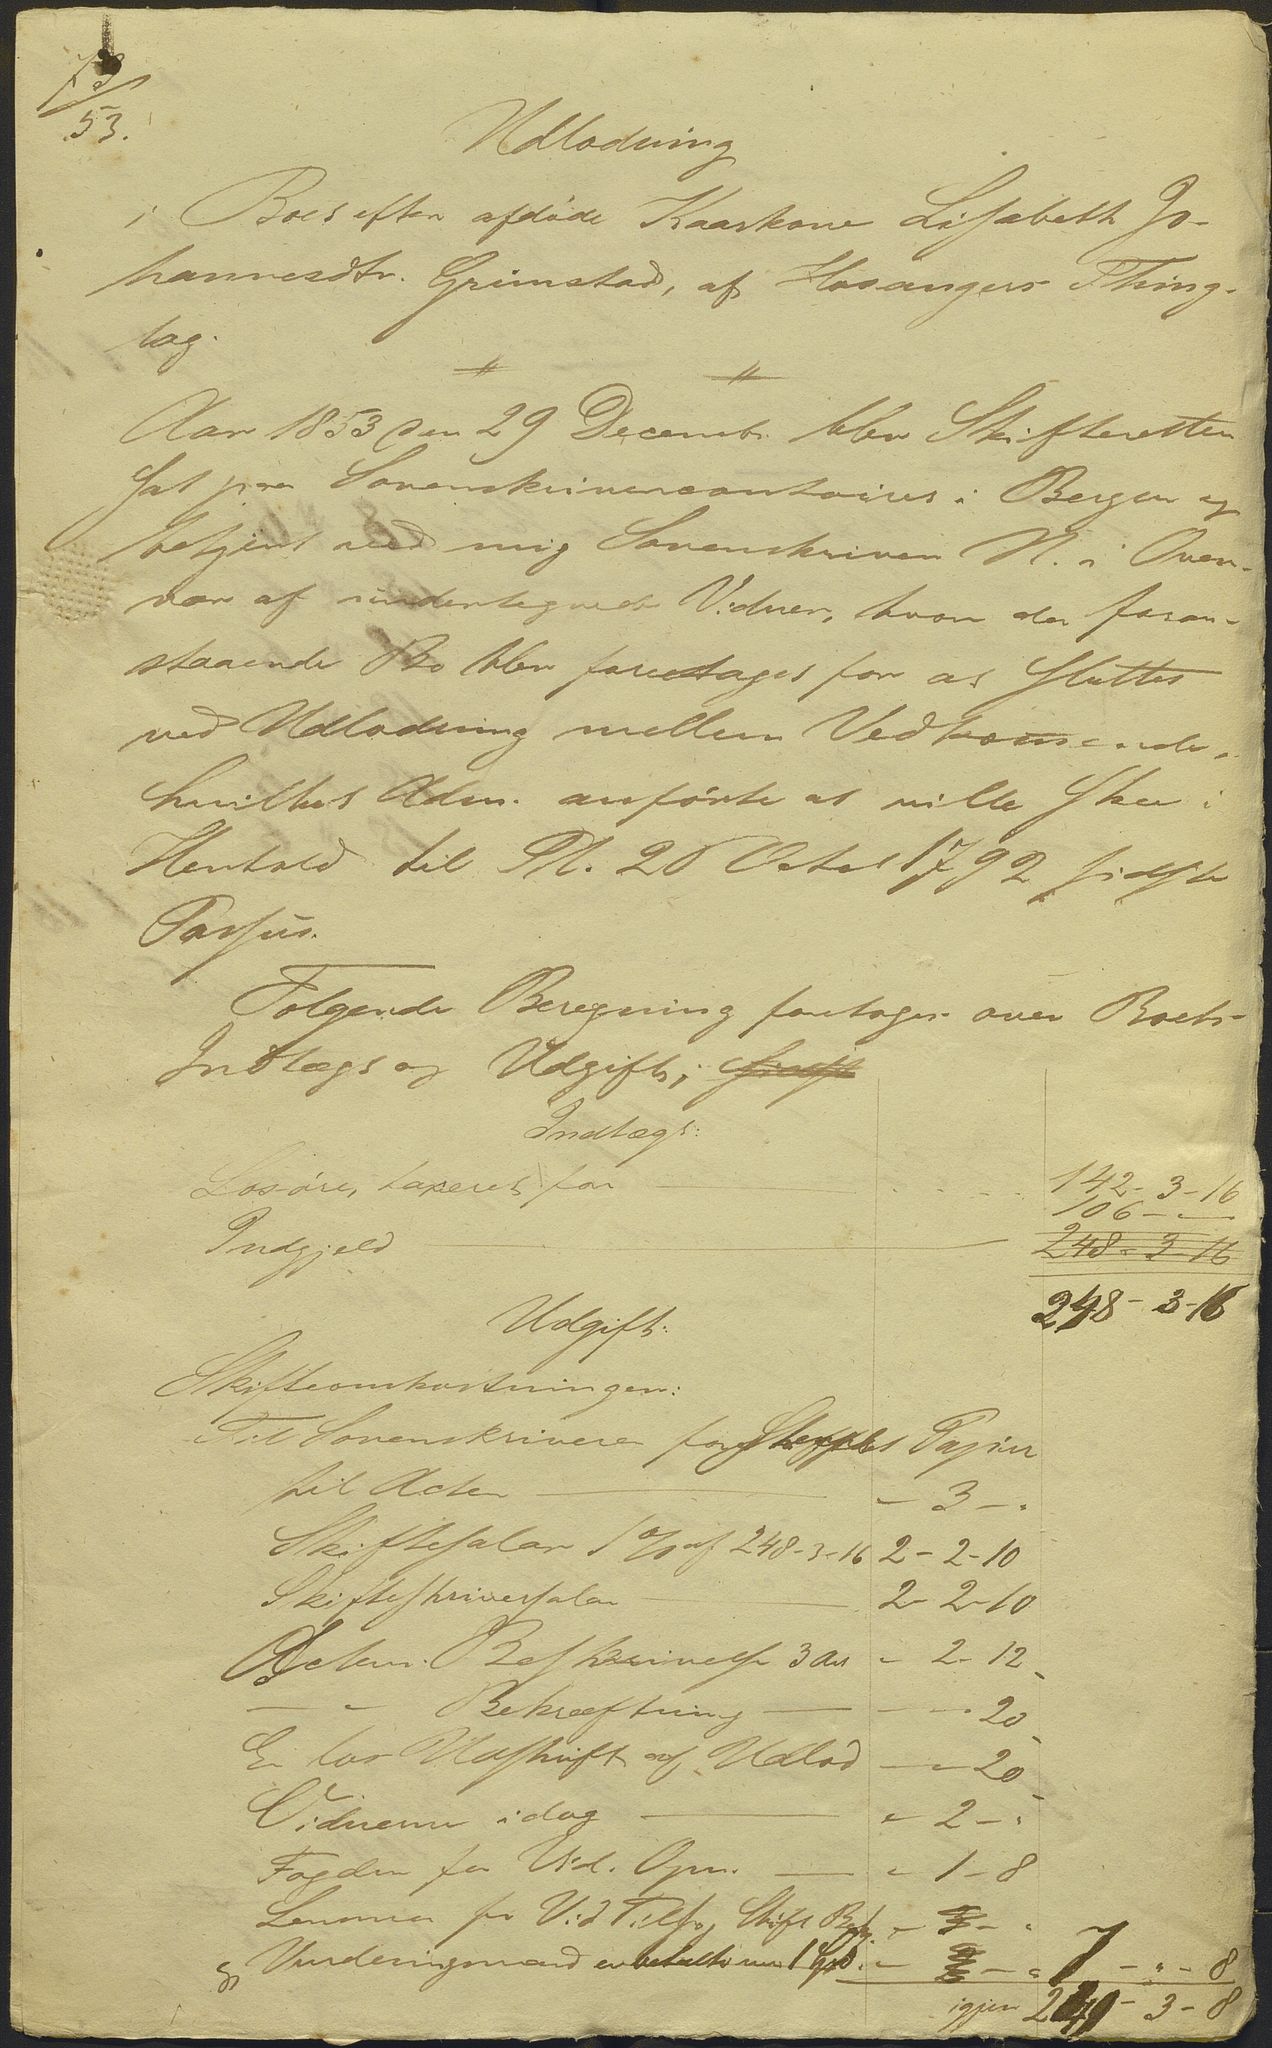 73/53.
Udlodning
i Boet efter afdöde Kaarkone Lisabeth Jo-
hannesdtr. Grimstad, af Hosangers Thing-
lag.
Aar 1853 den 29 Decembr. blev Skifteretten
sat paa Sorenskrivercontoiret i Bergen og
betjent ved mig Sorenskriver N. i Over-
vær af undertegnede Vidner, hvor da foran-
staaende Bo blev foretaget for at sluttes
ved Udlodning mellem Vedkommende,
hvilket Adm. anförte at ville skee i
Henhold til Pl. 20 Octob 1792 sidste
Passus.
Følgende Beregning foretoges over Boets
Indtægt og Udgift;
Indtægt:
Losöre, taxeret for 142 - 3 - 16
106 - -
Indgjeld 248 - 3 - 16
248 - 3 - 16
Udgift:
Skifteomkostninger:
Til Sorenskriveren for Stemplet Papiir
til Acten - 3 - "
Skiftesalar 1 % af 248-3-16 2 - 2 - 10
Skifteskriversalar 2 - 2 - 10
Actens Beskrivelse 3 Ark - 2 - 12
— " Bekræftning — 20
En lös Udskrift af Udlod — 20
Vidnerne idag " 2 - "
Fogden for Vid. Opn. - 1 - 8
Lensmanden for Vid Tilf og Skift Bet.
Vurderingsmænd 7 - " - 8
igjen 241 - 3 - 8